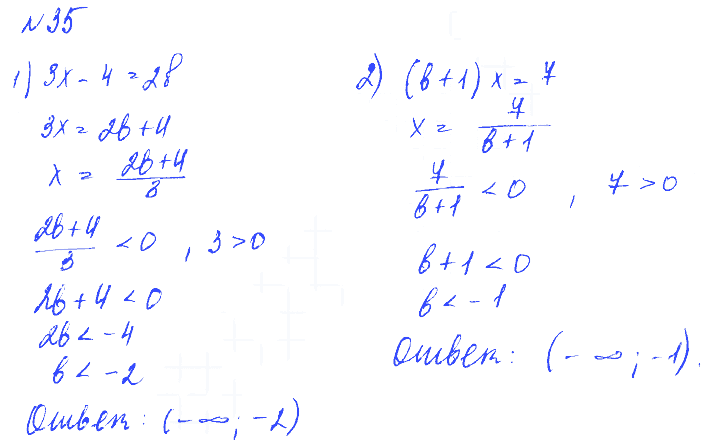 №35
1) 3x - 4 = 2b
3x = 2b + 4
x = \frac{2b+4}{3}
\frac{2b+4}{3} < 0 , 3 > 0
2b + 4 < 0
2b < -4
b < -2
Ответ: (-∞; -2)
2) (b+1) x = 7
x = \frac{7}{b+1}
\frac{7}{b+1} < 0 , 7 > 0
b + 1 < 0
b < -1
Ответ: (-∞; -1).